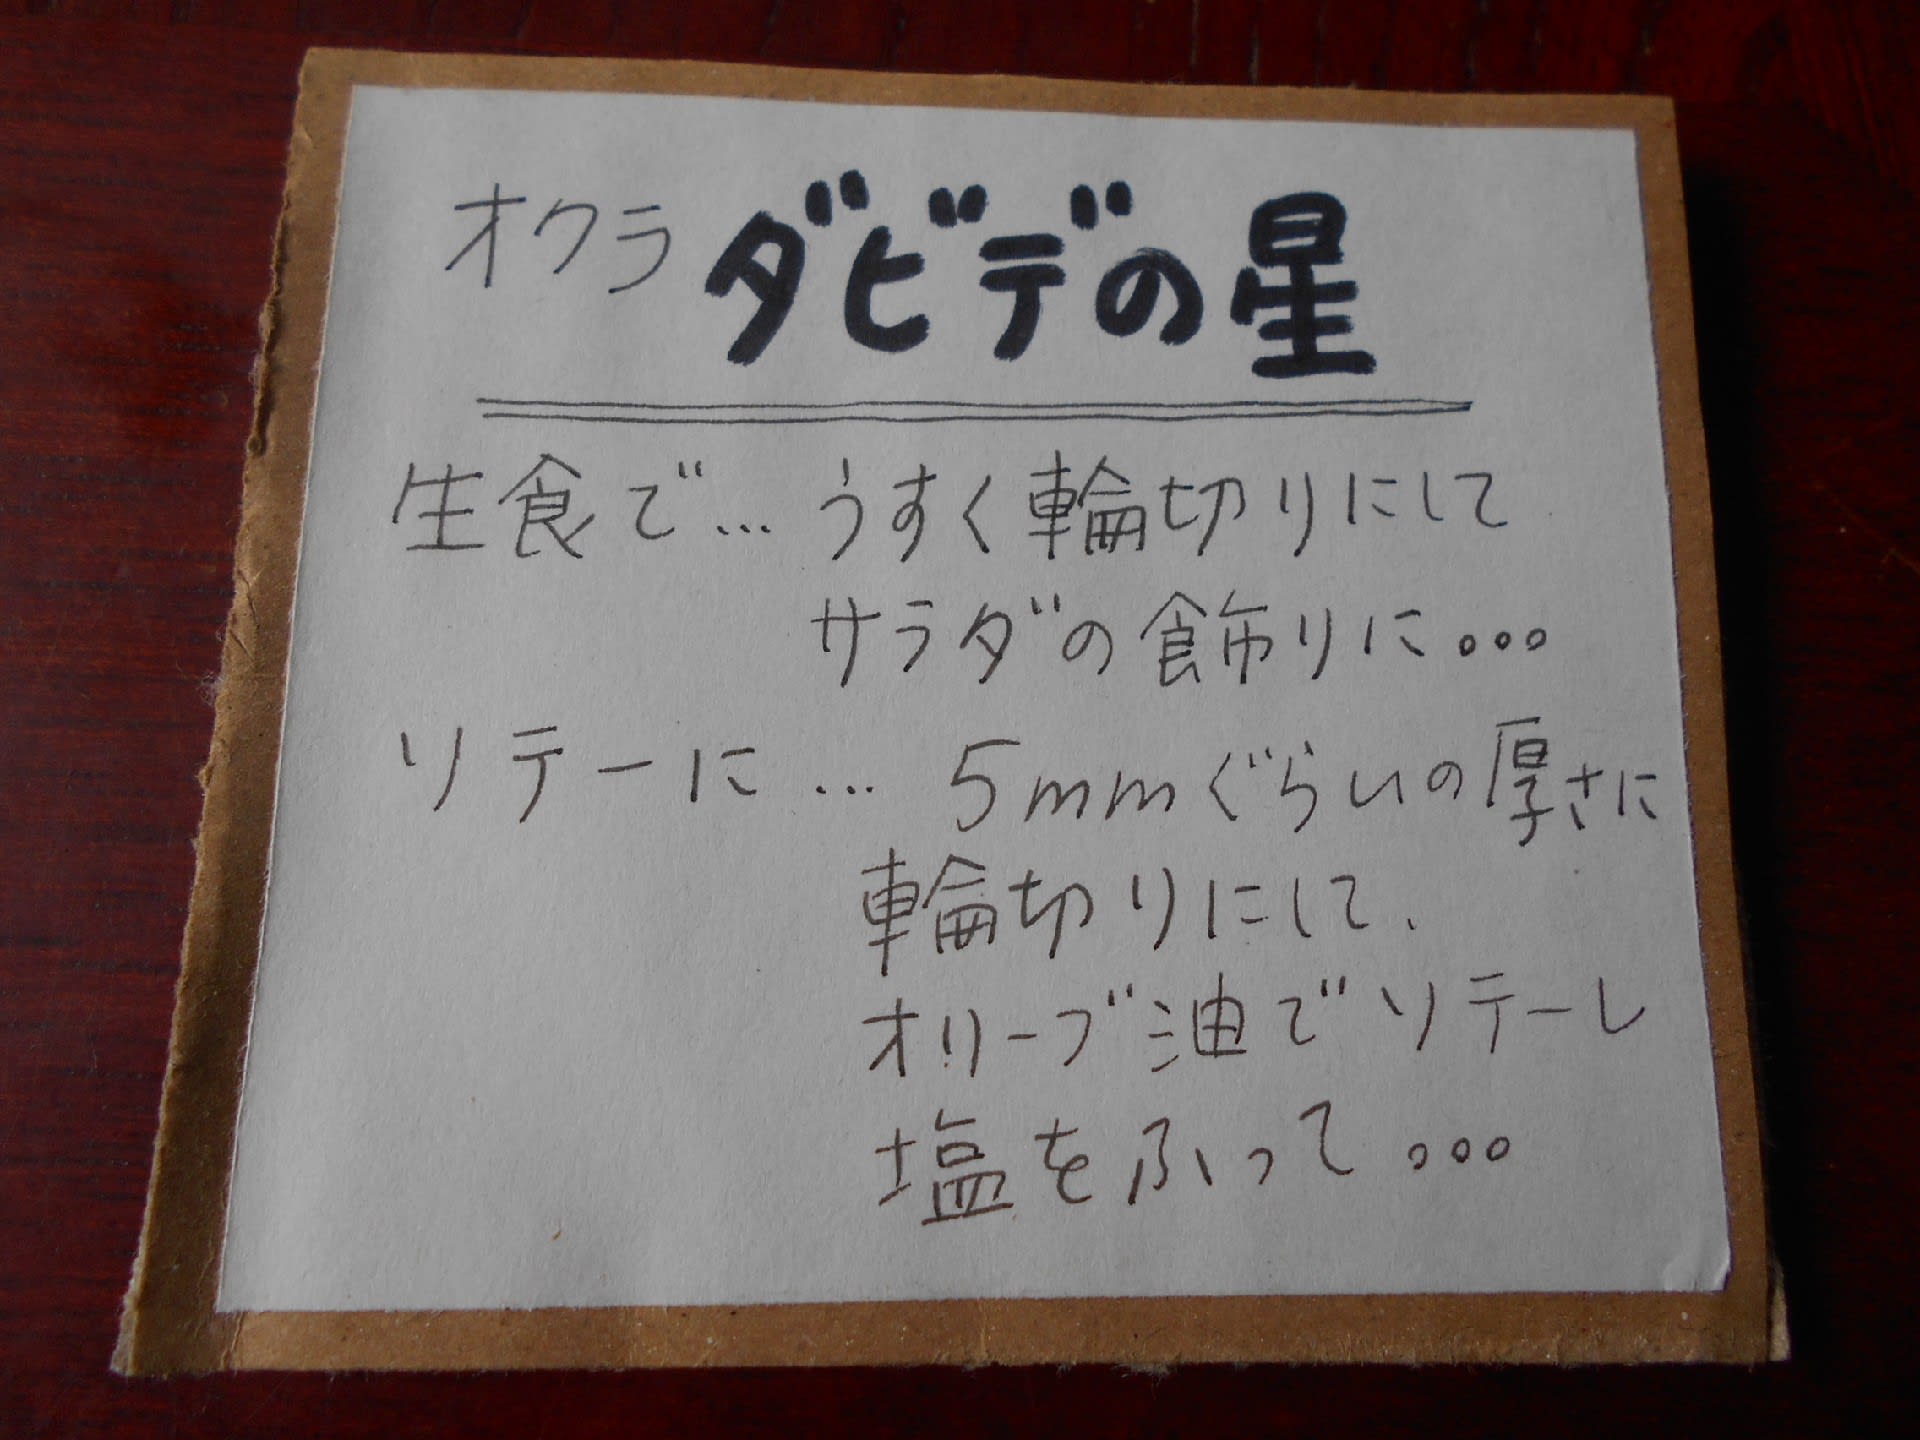 オクラ ダビデの星
生食で… うすく輪切りにして
サラダの飾りに。。。
ソテーに… 5mmぐらいの厚さに
輪切りにして、
オリーブ油でソテーし
塩をふって。。。